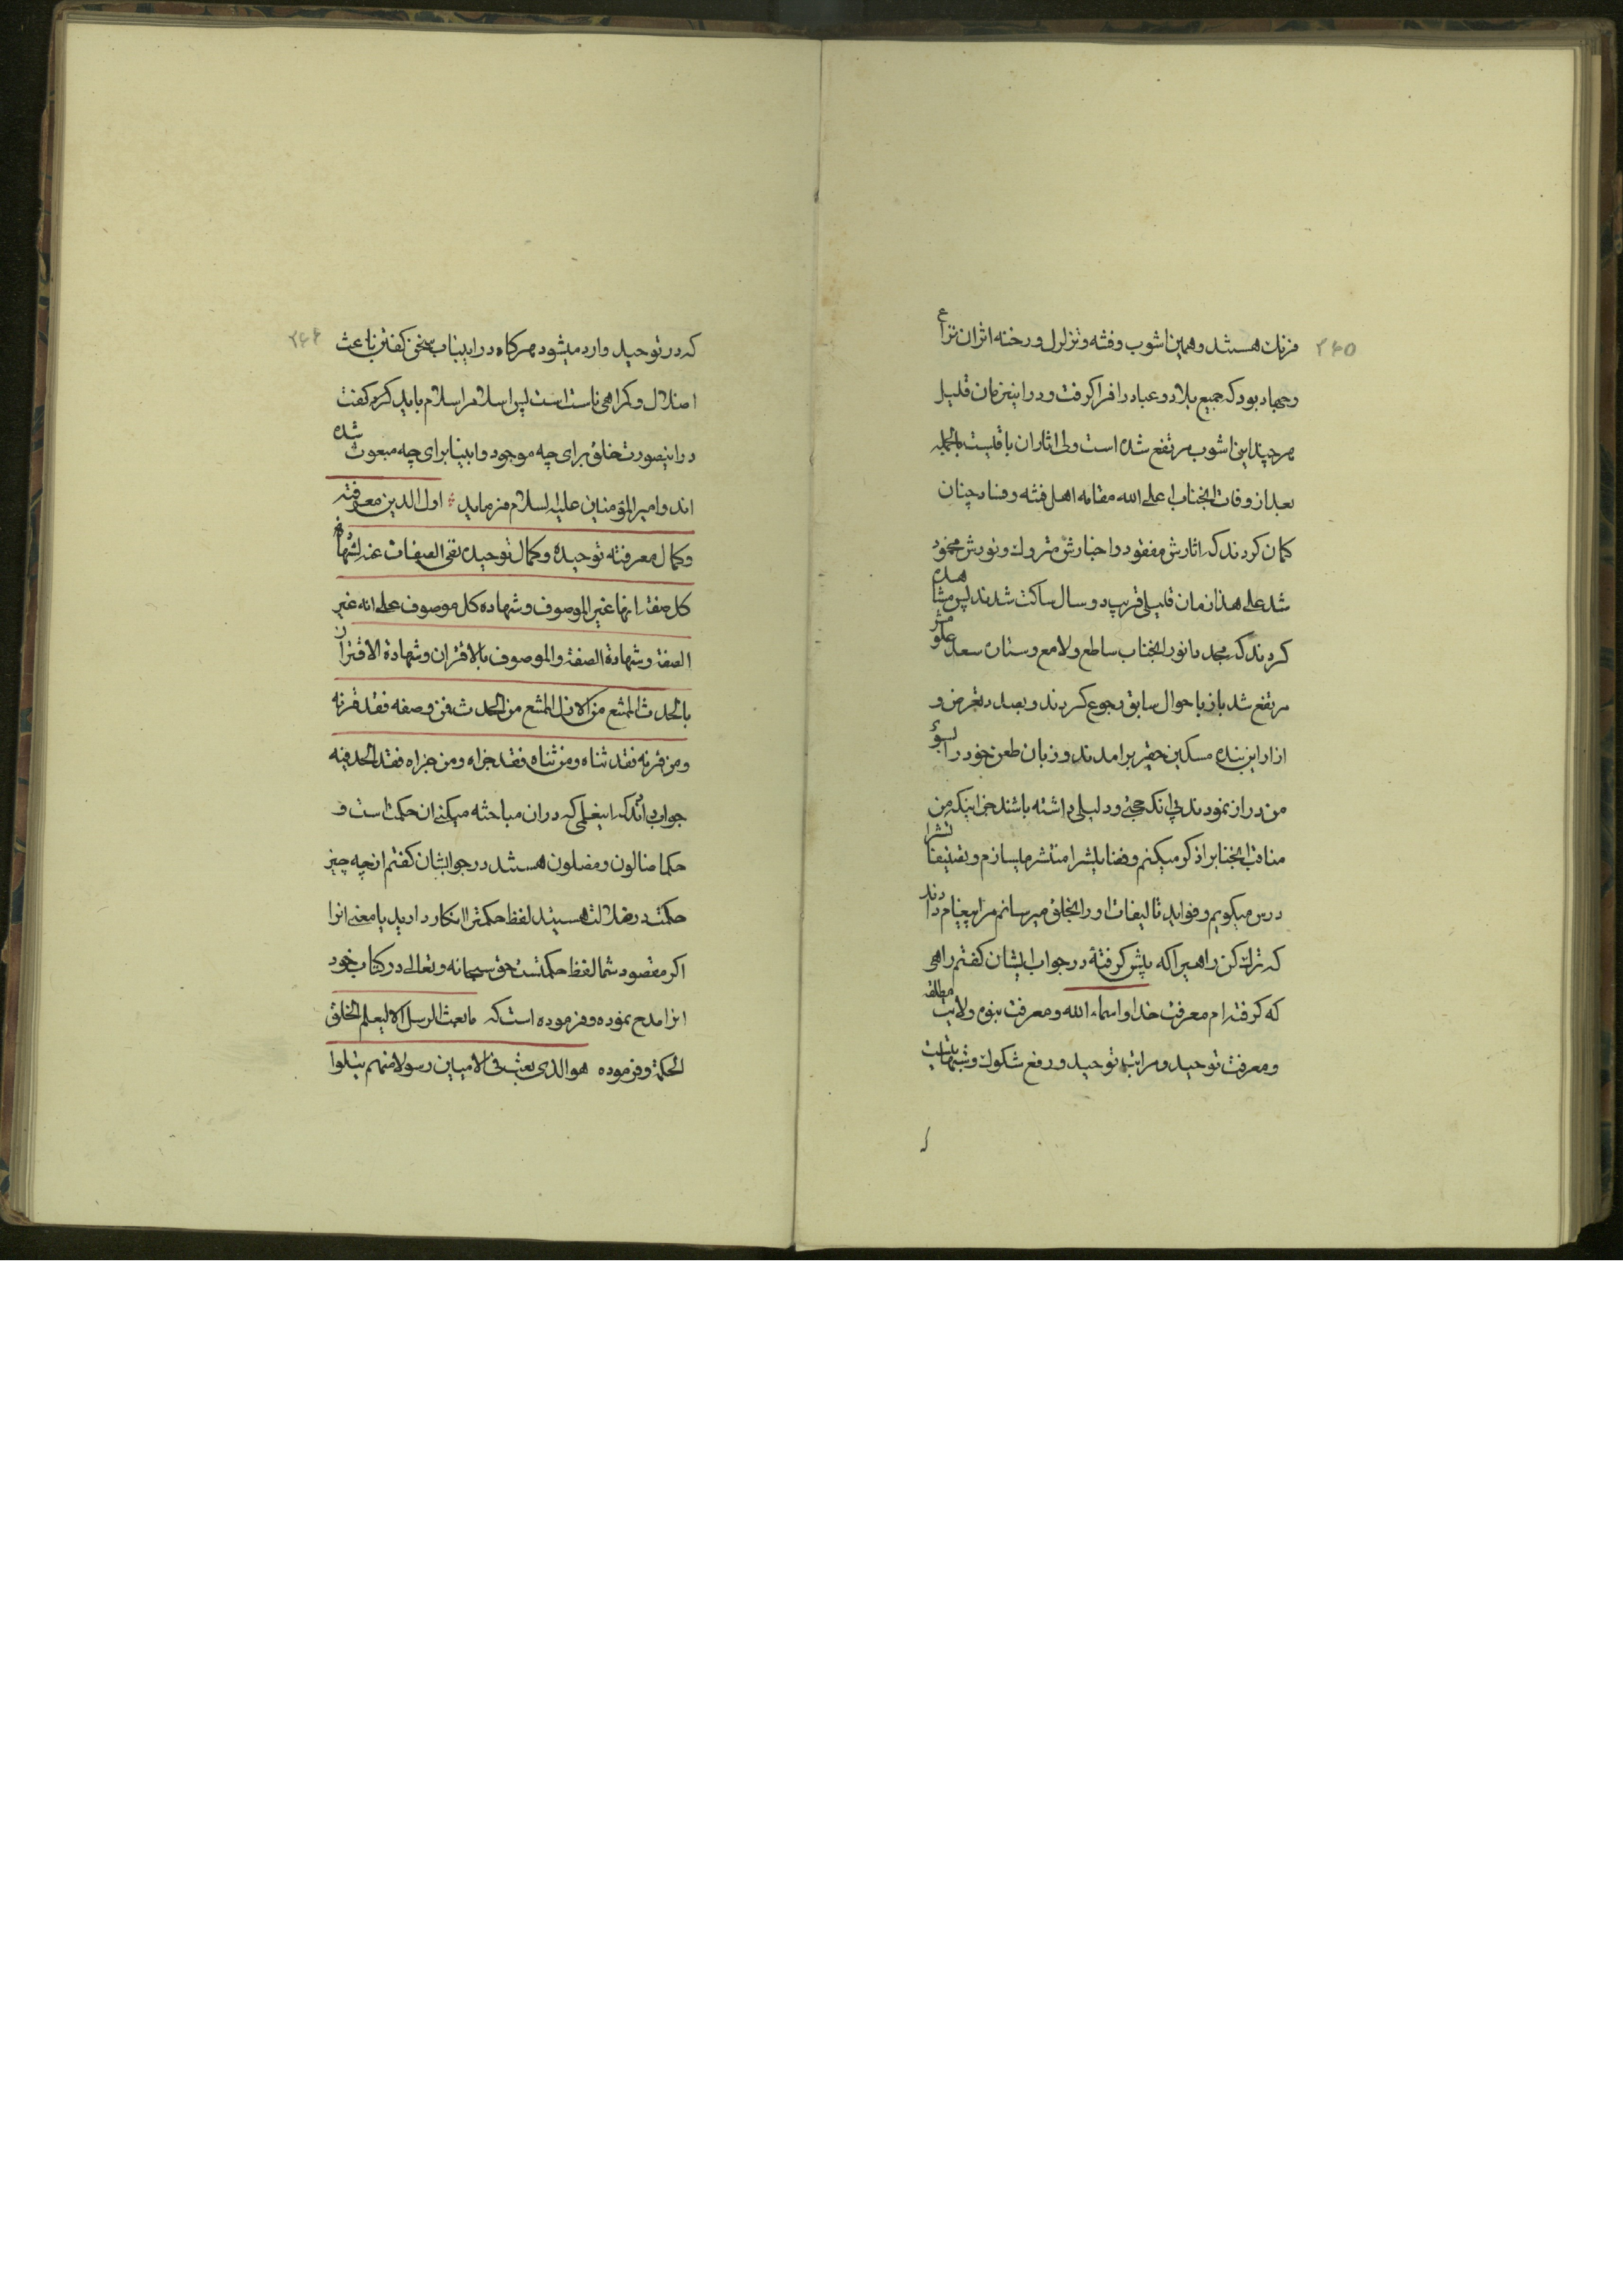 ۲۶۵
فرنك هستند و همین اشوب و فتنه و تزلزل و رخنه اثر ان نزاع
و جهاد بود که جمیع بلاد و عباد را فرا کرفت و در اینزمان قلیل
هر چند این اشوب مرتفع شده است ولی اثار ان باقیست بالجمله
بعد از وفات انجناب اعلی الله مقامه اهل فتنه و فساد چنان
کمان کردند که اثارش مفقود و اخبارش متروك و نورش مخمود
شد علی هذا زمان قلیلی قریب دو سال ساکت شدند پس مشاهده
کردند که بحمد نور انجناب ساطع و لامع و سعد علو
مرتفع شد باز باحوال سابق رجوع کردند و بصدد تعرض و
ازار این بنده مسکین حقیر برامدند و زبان طعن خود را بسوئ
من دراز نمودند بی انکه حجتی و دلیلی داشته باشند جز اینکه من
مناقب انجنابرا ذکر میکنم و فضایلشرا منتشر میسازم و تصنیفاتشرا
درس میکویم و فواید تالیفات او را بخلق میرسانم مرا پیغام دادند
که ترك کن راهیرا که پیش کرفتهٔ در جواب ایشان کفتم راهی
که کرفته ام معرفت خدا و اسماء الله و معرفت نبوة و ولایت مطلقه
و معرفت توحید و مراتب توحید و رفع شکوك و شبهاتیست
۲۶۶
که در توحید وارد میشود هرکاه در اینباب سخن کفتن باعث
اضلال و کمراهی ناست است پس اسلام را سلام باید کرد کفت
در اینصورت خلق برای چه موجود و انبیا برای چه مبعوث شده
اند و امیر المؤمنین علیه السلام فرماید اول الدین معرفته
و کمال معرفته توحیده و کمال توحیده نفی الصفات عنه لشهادة
کل صفة انها غیر الموصوف و شهاده کل موصوف علی انه غیر
الصفة و شهادة الصفة و الموصوف بالاقتران و شهادة الاقتران
بالحدث الممتنع من الازل الممتنع من الحدث فمن وصفه فقد قرنه
و من قرنه فقد ثناه و من ثناه فقد جزاه و من جزاه فقد الحد فیه
جواب دادند که اینعلمی که در ان مباحثه میکنی ان حکمت است و
حکما ضالون و مضلون هستند در جوابشان کفتم از چه چیز
حکمت در ضلالت هستید لفظ حکمترا انکار دارید یا معنی انرا
اکر مقصود شما لفظ حکمتست حق سبحانه و تعالی در کتاب خود
انرا مدح نموده و فرموده است که ما بعث الرسل الا لیعلم الخلق
الحکمة و فرموده هو الذی بعث فی الامیین رسولا منهم یتلوا